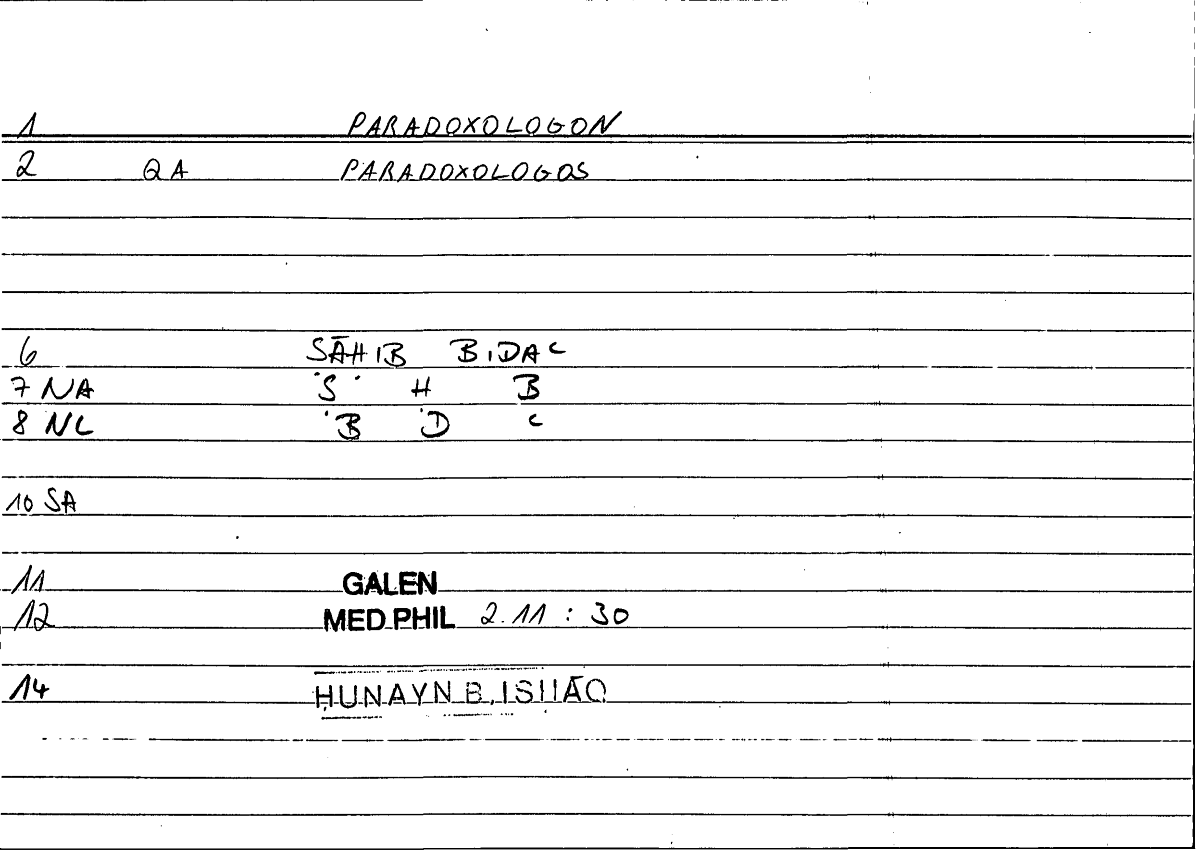 1 PARADOXOLOGON
2 QA PARADOXOLOGOS
6 SĀHIB BIDAC
7 NA S H B
8 NL B D C
10 SA
11 GALEN
12 MED PHIL 2.11 : 30
14 ḤUNAYN B. ISḤĀQ